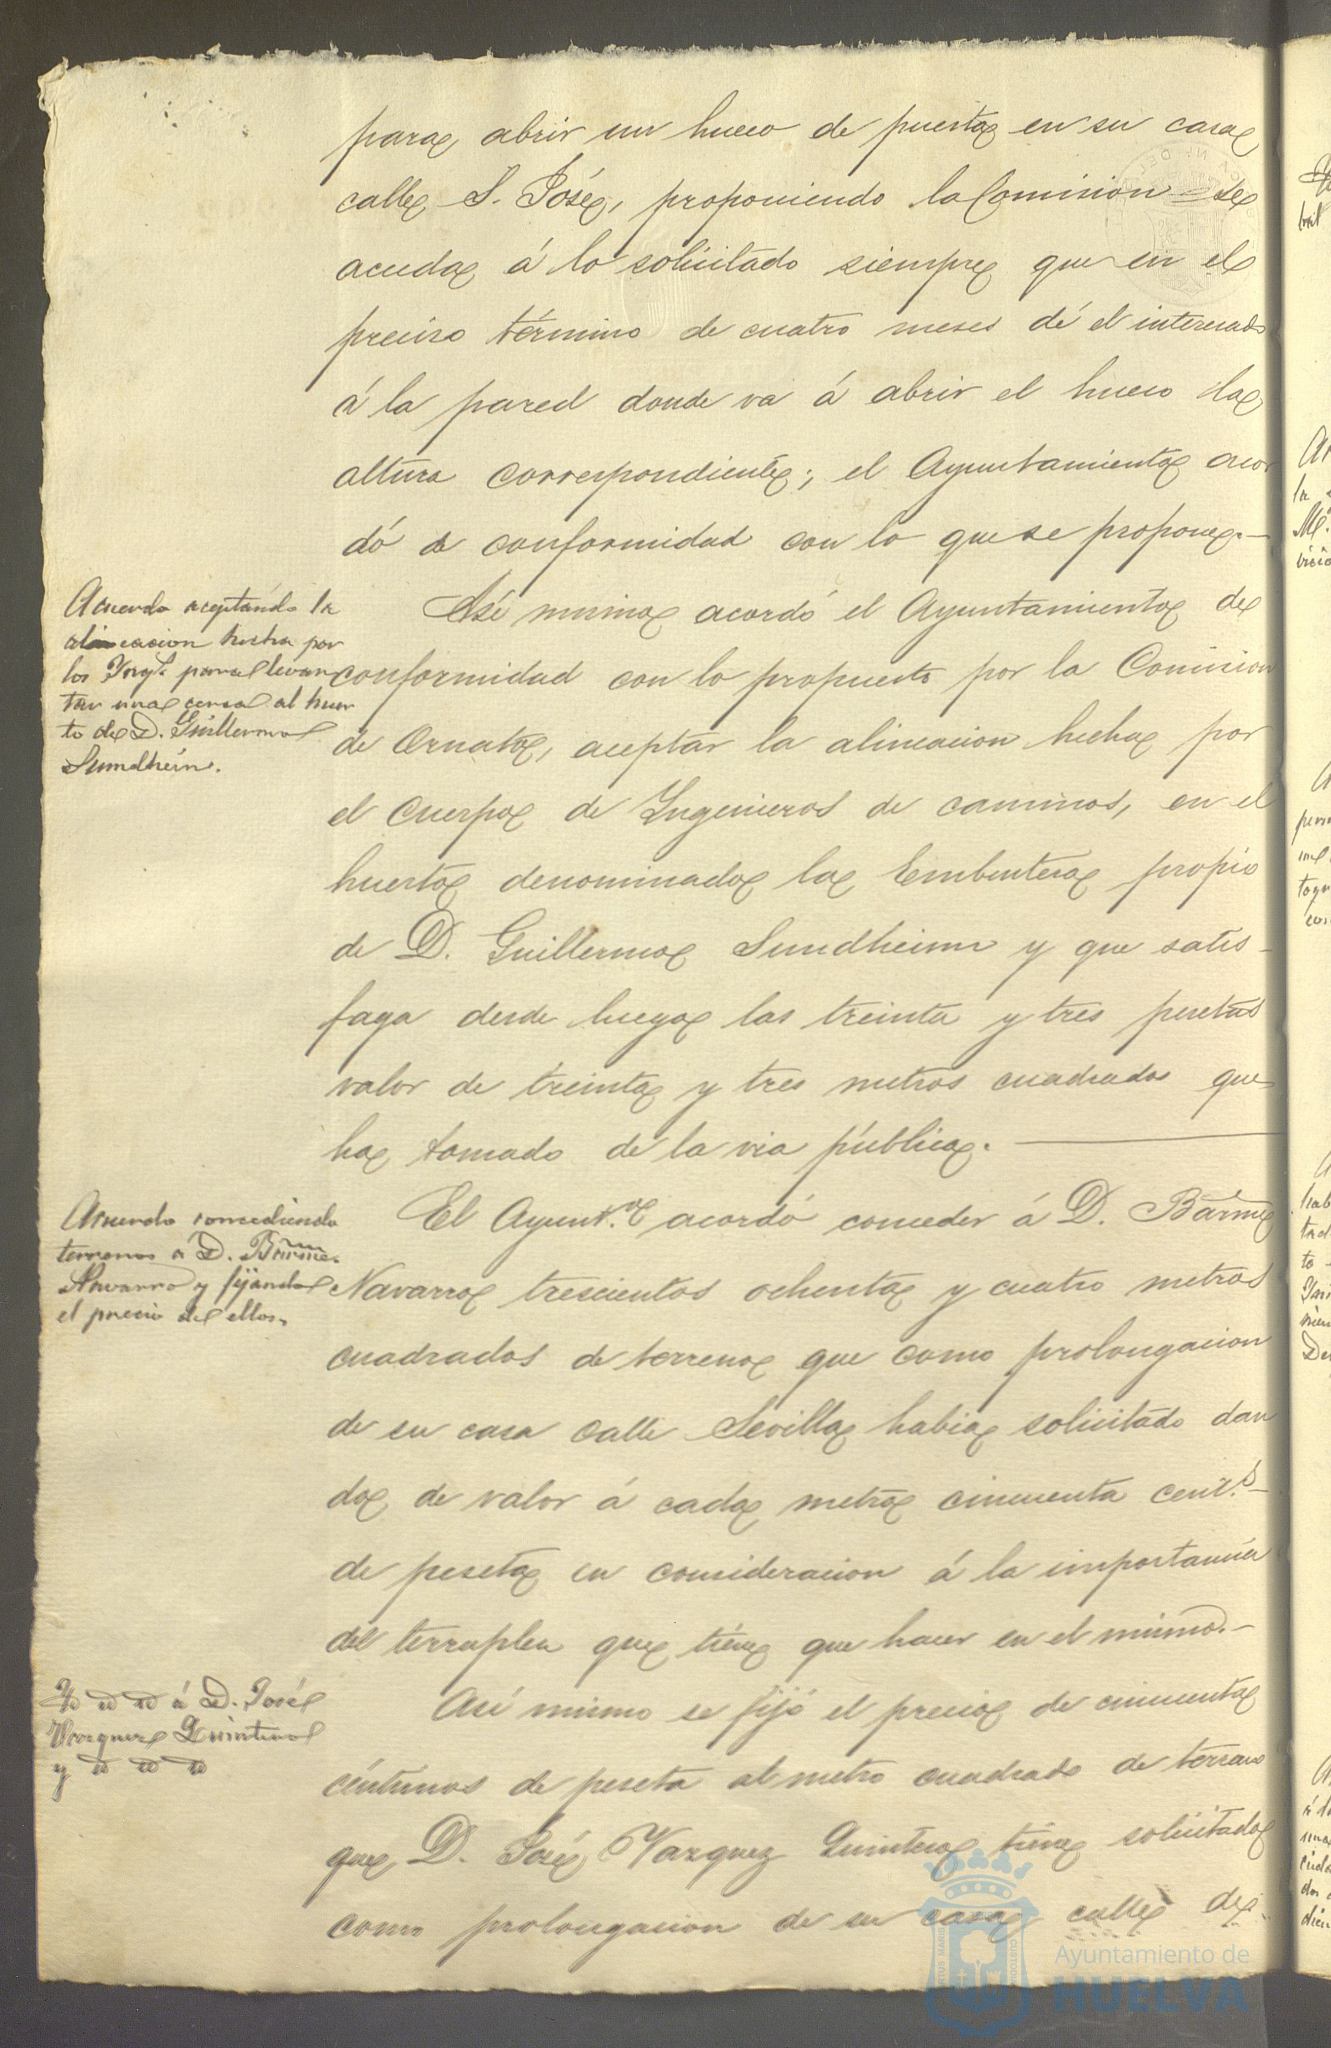 para abrir un hueco de puerta en su casa
calle S. José, proponiendo la Comision se
acuda á lo solicitado siempre que en el
preciso término de cuatro meses dé el interesado
á la pared donde va á abrir el hueco la
altura correspondiente; el Ayuntamiento acor
dó de conformidad con lo que se propone.—
Acuerdo aceptando la
alineacion hecha por
los Ings. para levan
tar una cerca al huer
to de D. Guillermo
Sundhein.
Asi mismo acordó el Ayuntamiento de
conformidad con lo propuesto por la Comision
de Ornato, aceptar la alineacion hecha por
el Cuerpo de Ingenieros de caminos, en el
huerto denominado la Embutera propio
de D. Guillermo Sundheim y que satis-
faga desde luego las treinta y tres pesetas
valor de treinta y tres metros cuadrados que
ha tomado de la via pública.
Acuerdo concediendo
terrenos a D. Barme.
Navarro y fijando
el precio de ellos.
El Ayunt.º acordó conceder á D. Barme
Navarro trescientos ochenta y cuatro metros
cuadrados de terreno que como prolongacion
de su casa calle Sevilla habia solicitado dan
do de valor á cada metro cincuenta cent.s
de peseta en consideracion á la importancia
del terraplen que tiene que hacer en el mismo.—
Yd id id á D. José
Vazquez Quintero
y id id id
Asi mismo se fijó el precio de cincuenta
céntimos de peseta al metro cuadrado de terreno
que D. José Vazquez Quintero tiene solicitado
como prolongacion de su casa calle de
Ayuntamiento de
HUELVA